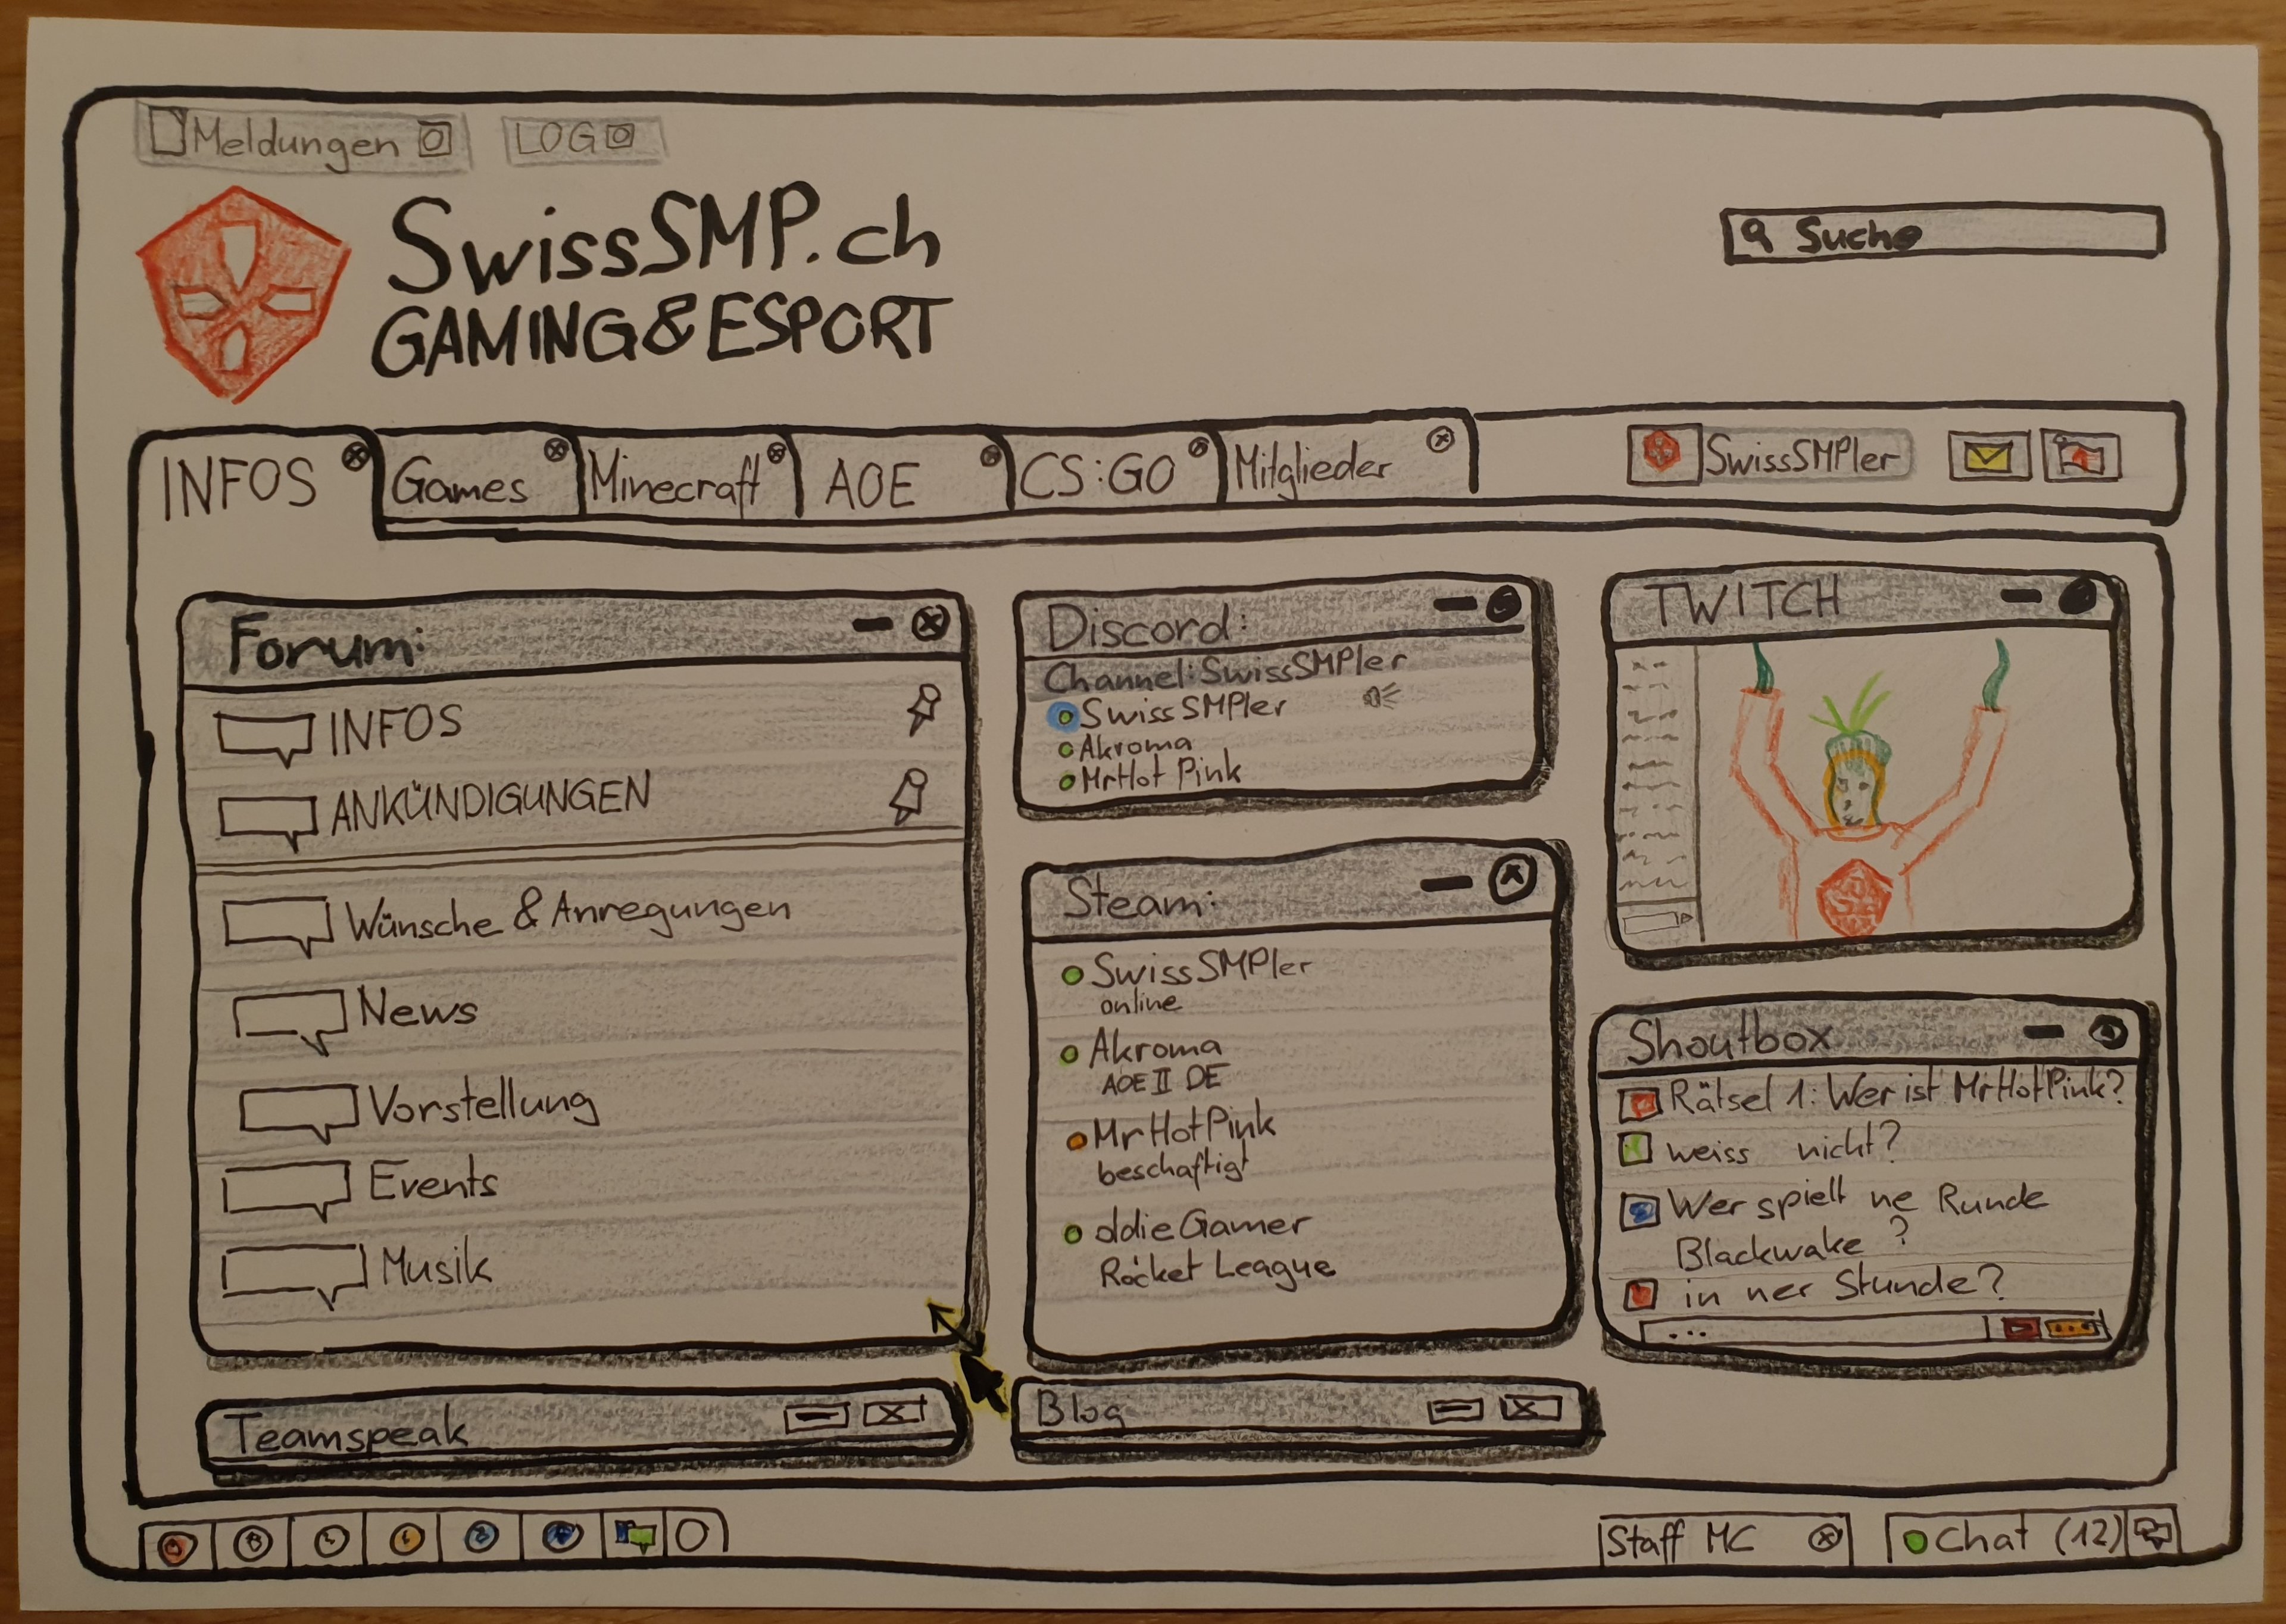 Meldungen
LOG
SwissSMP.ch
GAMING&ESPORT
Suche
INFOS
Games
Minecraft
AOE
CS:GO
Mitglieder
SwissSMPler
Forum:
INFOS
ANKÜNDIGUNGEN
Wünsche & Anregungen
News
Vorstellung
Events
Musik
Teamspeak
Discord:
Channel: SwissSMPler
SwissSMPler
Akroma
MrHot Pink
Steam:
SwissSMPler
online
Akroma
AOE II DE
MrHotPink
beschäftigt
ddieGamer
Rocket League
Blog
TWITCH
Shoutbox
Rätsel 1: Wer ist MrHotPink?
weiss nicht?
Wer spielt ne Runde
Blackwake?
in ner Stunde?
...
Staff MC
Chat (12)